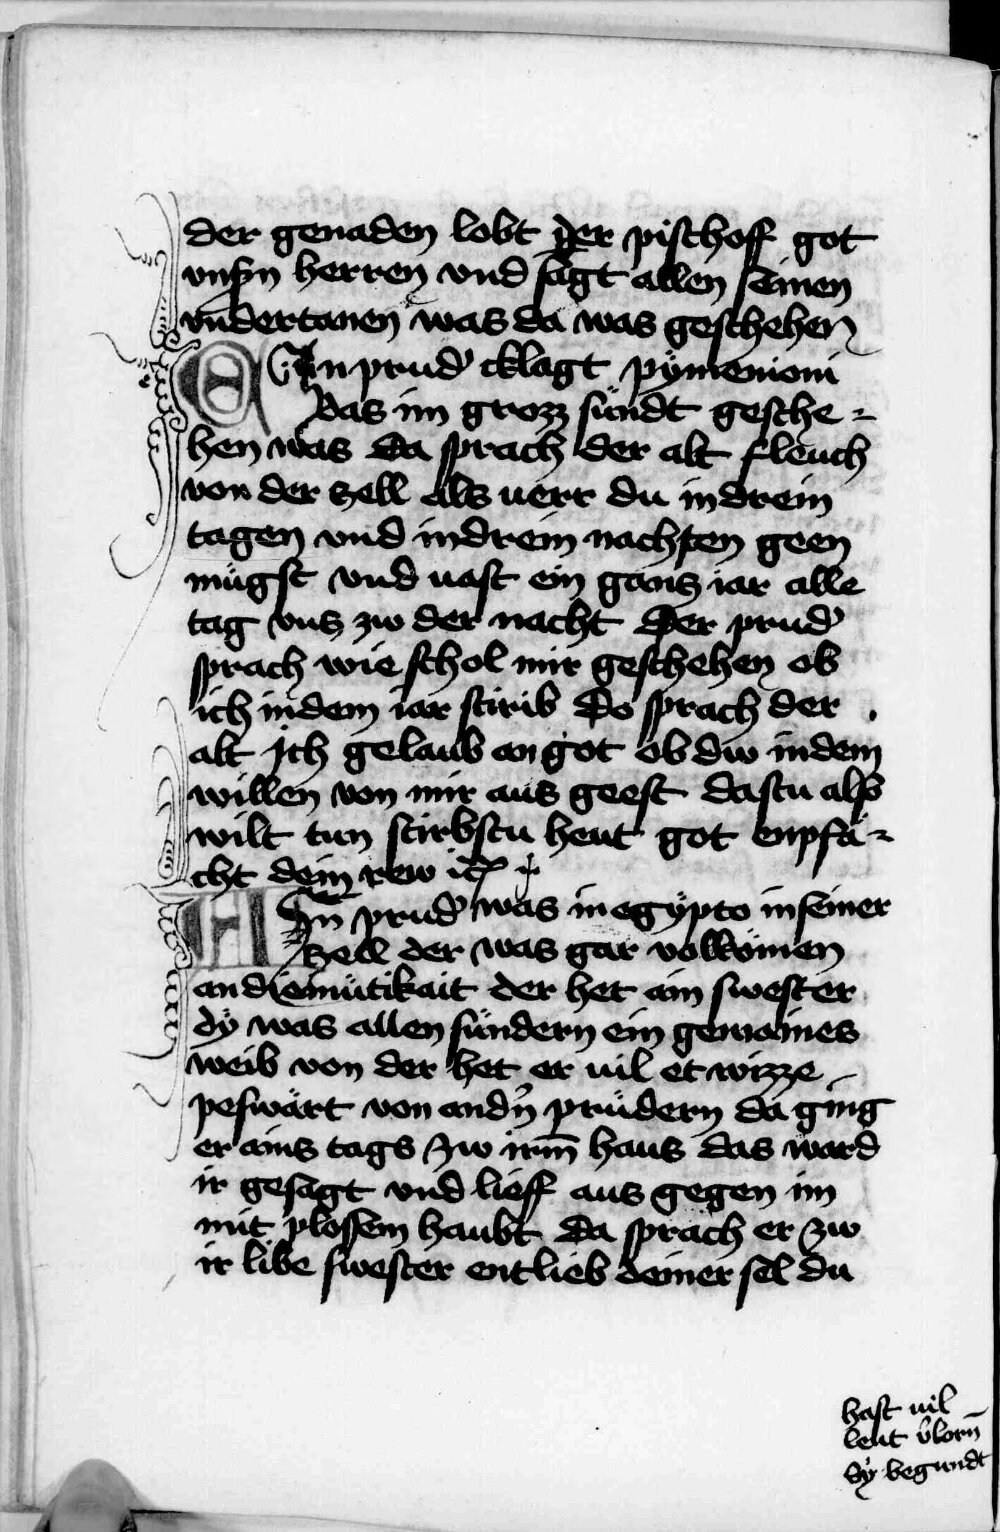 der genaden lobt der pischoff got
vnsn̄ herren vnd sagt allen seinen
vn̄dertanen was da was geschehen
Ein prud̛ cklagt pÿmenioni
das im grozz sündt gesche⸗
hen was da sprach der alt fleuch
von der zell als uerr du in drein
tagen vnd in drein nachten geen
mügst vnd uast ein gancz iar alle
tag vns zw der nacht Der prud̛
sprach wie schol mir geschehen ob
ich in dem iar stirib Do sprach der
alt Jch gelaub an got ob dw in dem
willen von mir aus geest dastu als
wilt tun stirbstu heut got enpfä⸗
cht dein rew ic̄
Ein prud̛ was in egÿpto in seiner
zell der was gar volkömen
an diemütikait der het ain swester
dÿ was allen sündern ein gemaines
weib von der het er uil et wizze
peswärt von andn̛ prüdern da ging
er ains tags zw irm̄ haus das ward
ir gesagt vnd lieff aus gegen im
mit plossem haubt da sprach er zw
ir libe swester entlieb deiner sel du
hast uil
leut v̛lorn̄
Sÿ begundt